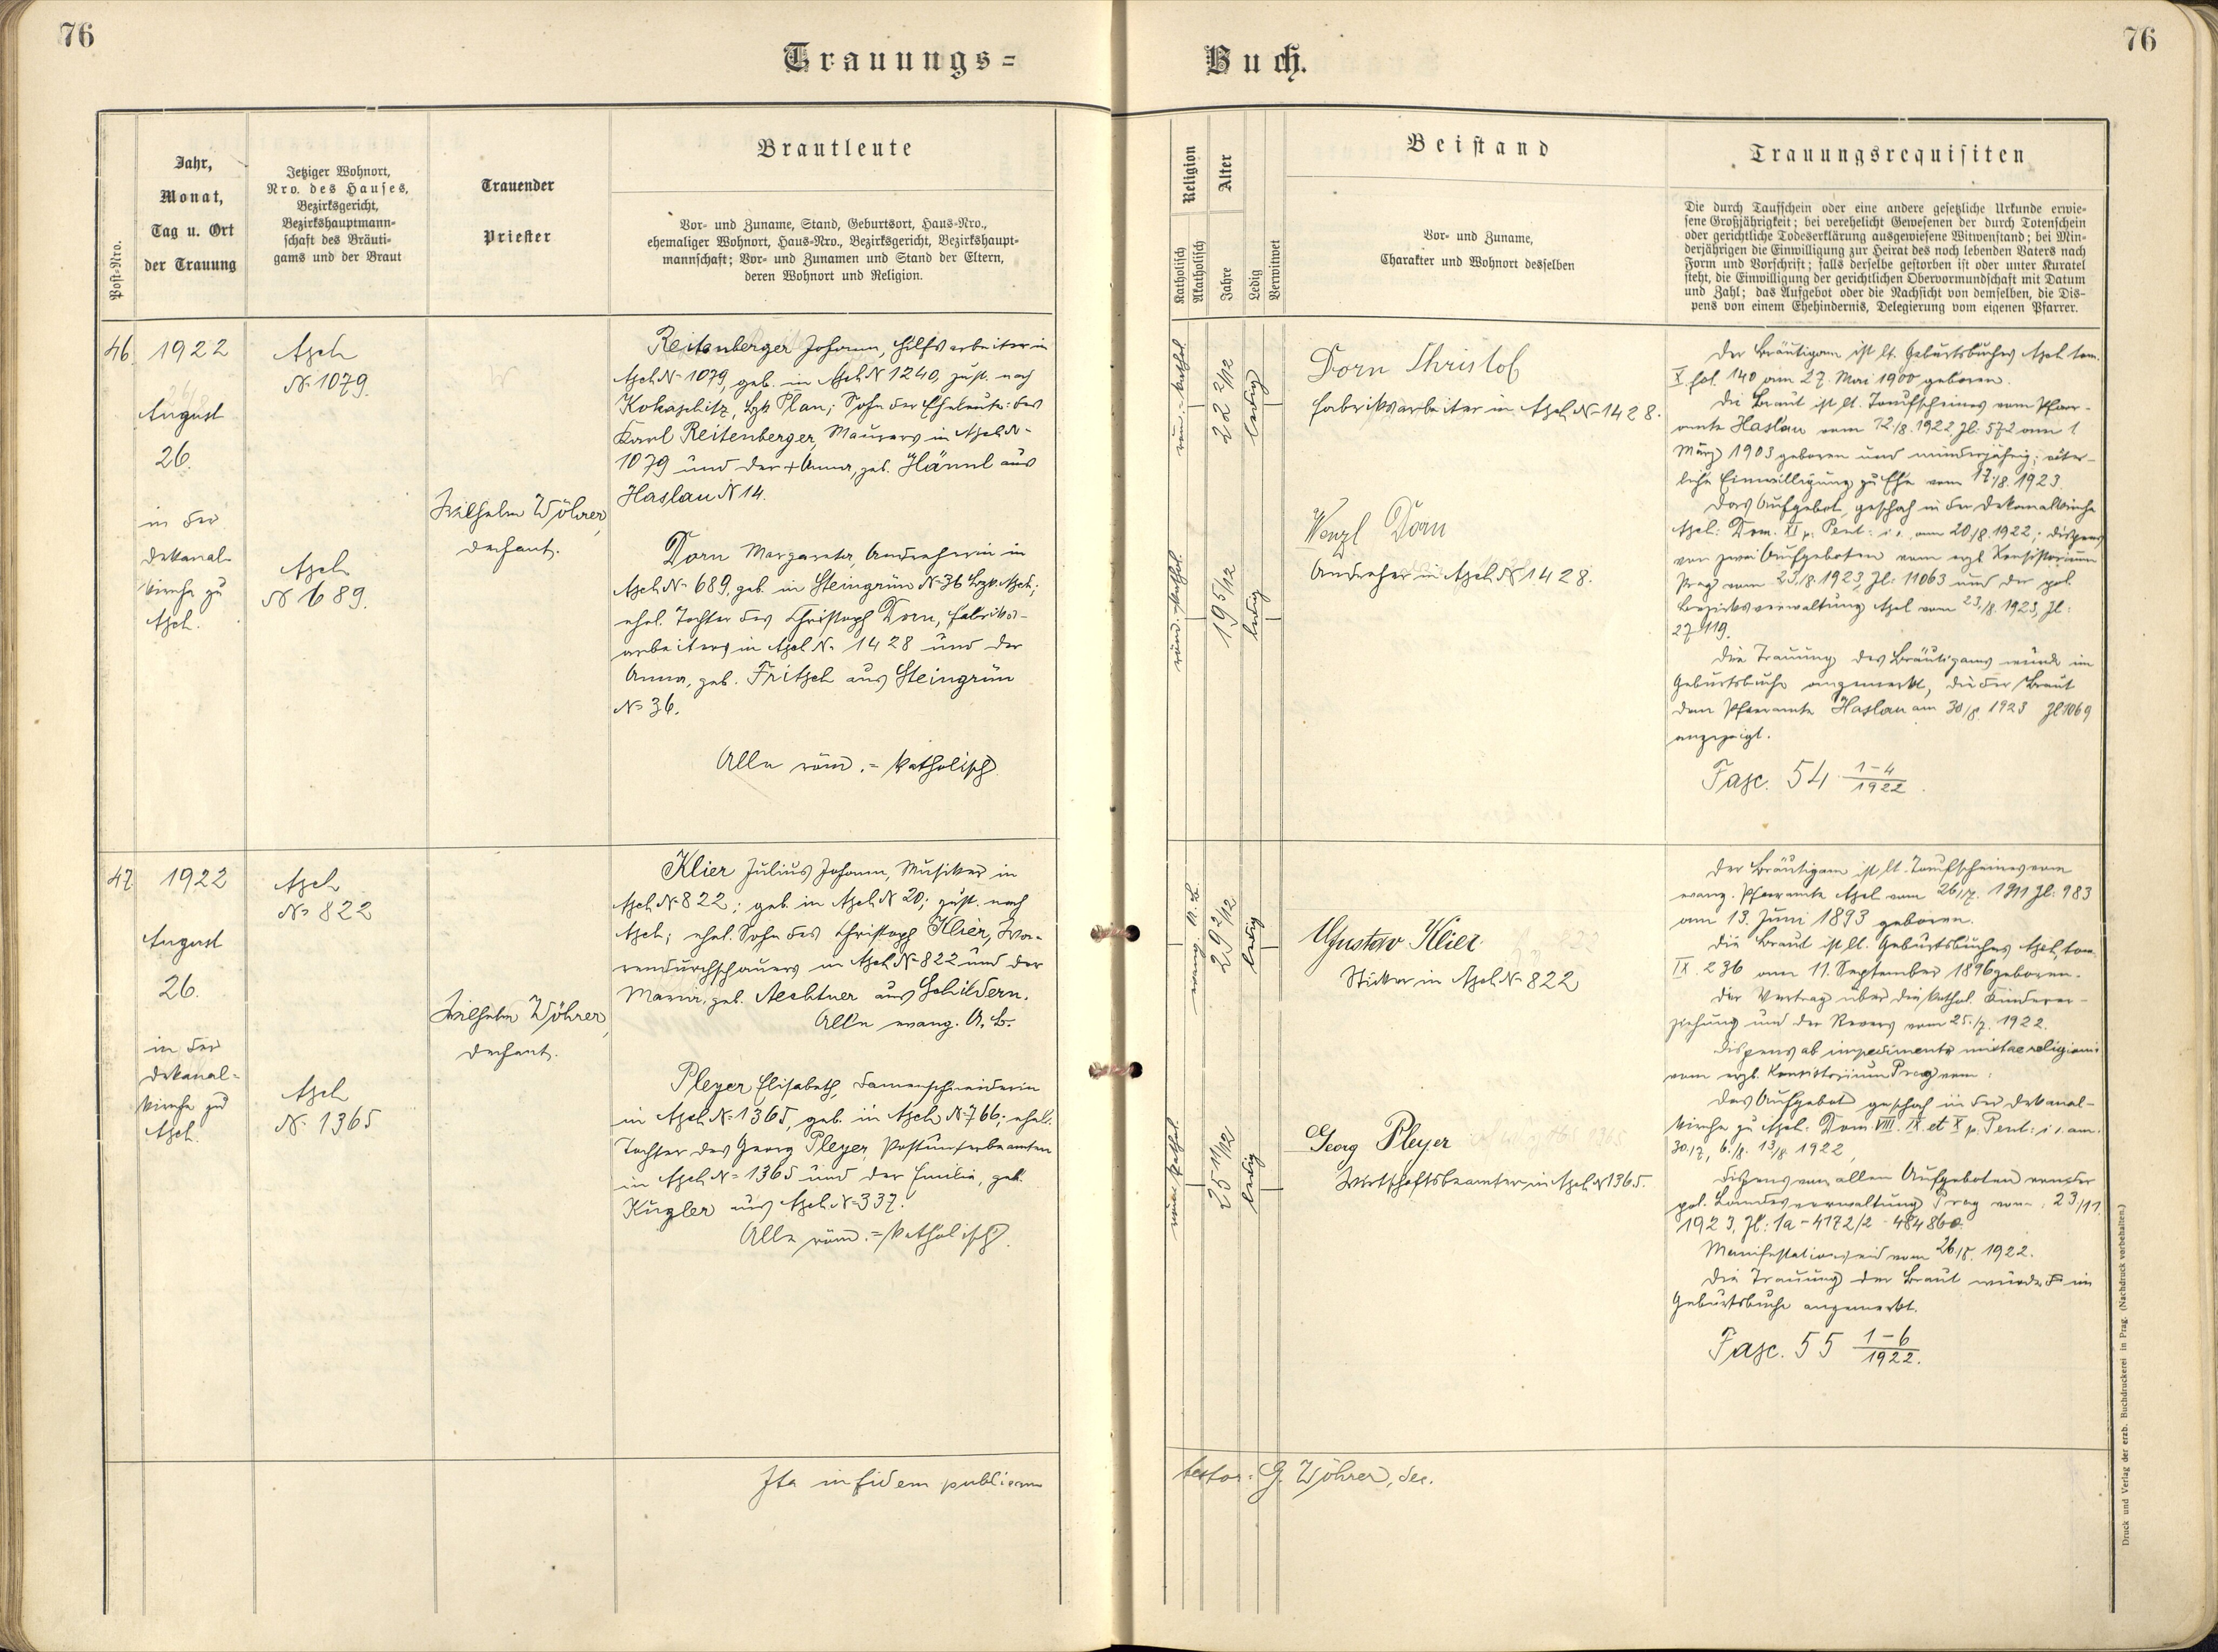 76
76
Trauungs=
Buch.
Post-Nro.
Jahr,
Monat,
Tag u. Ort
der Trauung
Jetziger Wohnort,
Nro. des Hauses,
Bezirksgericht,
Bezirkshauptmann-
schaft des Bräuti-
gams und der Braut
Trauender
Priester
Brautleute
Vor- und Zuname, Stand, Geburtsort, Haus-Nro.,
ehemaliger Wohnort, Haus-Nro., Bezirksgericht, Bezirkshaupt-
mannschaft; Vor- und Zunamen und Stand der Eltern,
deren Wohnort und Religion.
Religion
Katholisch
Akatholisch
Alter
Jahre
Ledig
Verwitwet
Beistand
Vor- und Zuname,
Charakter und Wohnort desselben
Trauungsrequisiten
Die durch Taufschein oder eine andere gesetzliche Urkunde erwie-
sene Großjährigkeit; bei verehelicht Gewesenen der durch Totenschein
oder gerichtliche Todeserklärung ausgewiesene Witwenstand; bei Min-
derjährigen die Einwilligung zur Heirat des noch lebenden Vaters nach
Form und Vorschrift; falls derselbe gestorben ist oder unter Kuratel
steht, die Einwilligung der gerichtlichen Obervormundschaft mit Datum
und Zahl; das Aufgebot oder die Nachsicht von demselben, die Dis-
pens von einem Ehehindernis, Delegierung vom eigenen Pfarrer.
46.
1922
August
26.
in der
Dekanal-
kirche zu
Asch.
Asch
N 1079.
Asch
N 689.
Wilhelm Wöhrer,
Dechant.
Reitenberger Johann, Hilfsarbeiter in
Asch N= 1079, geb. in Asch N 1240, zust. nach
Kokaschitz, Bzk Plan; Sohn der Eheleute: des
Karl Reitenberger, Maurers in Asch N=
1079 und der + Anna, geb. Händl aus
Haslau N 14.
Dorn Margareta, Andreherin in
Asch N= 689, geb. in Steingrün N= 36 Bzk. Asch;
ehel. Tochter des Christoph Dorn, Fabriks-
arbeiters in Asch N= 1428 und der
Anna, geb. Fritsch aus Steingrün
N= 36.
Alle röm.=katholisch
röm.=kathol.
22 2/12
ledig
röm.=kathol.
19 5/12
ledig
Dorn Christof
Fabriksarbeiter in Asch N= 1428.
Wenzl Dorn
Andreher in Asch N 1428.
Der Bräutigam ist lt. Geburtsbuches Asch tom.
X. fol. 140 am 27. Mai 1900 geboren.
Die Braut ist lt. Taufscheines vom Pfarr-
amte Haslau vom 12./8. 1922 Zl: 572 am 1.
März 1903 geboren und minderjährig; väter-
liche Einwilligung zu Ehe vom 17./8. 1923.
Das Aufgebot geschah in der Dekanalkirche
Asch: Dom. XI p. Pent: i. e. am 20./8. 1922; Dispens
von zwei Aufgeboten vom erzb. Konsistorium
Prag vom 23./8. 1923, Zl: 11063 und der pol.
Bezirksverwaltung Asch vom 23./8. 1923, Zl:
27119.
Die Trauung des Bräutigams wurde im
Geburtsbuche angemerkt, die der Braut
dem Pfarramte Haslau am 30/8. 1923 Zl 1069
angezeigt.
Fasc. 54 1-4/1922.
47.
1922
August
26.
in der
Dekanal-
kirche zu
Asch.
Asch
N= 822
Asch
N= 1365
Wilhelm Wöhrer,
Dechant.
Klier Julius Johann, Musiker in
Asch N= 822; geb. in Asch N 20; zust. nach
Asch; ehel. Sohn des Christoph Klier, Wa-
rendurchschauers in Asch N= 822 und der
Maria, geb. Aechtner aus Schildern.
Alle evang. A. B.
Pleyer Elisabeth, Damenschneiderin
in Asch N= 1365, geb. in Asch N= 766; ehel.
Tochter des Georg Pleyer, Postunterbeamten
in Asch N= 1365 und der Emilie, geb.
Kugler aus Asch N= 337.
Alle röm.=katholisch.
evang. A. B.
29 2/12
ledig
röm. kathol.
25 11/12
ledig
Gustav Klier
Sticker in Asch N= 822
Georg Pleyer
Wirtschaftsbeamter in Asch N 1365.
Der Bräutigam ist lt. Taufscheines vom
evang. Pfarramte Asch vom 26./7. 1911 Zl: 983
am 13. Juni 1893 geboren.
Die Braut ist lt. Geburtsbuches Asch, tom.
IX. 236 am 11. September 1896 geboren.
Der Vertrag über die kathol. Kinderer-
ziehung und der Revers vom 25./7. 1922.
Dispens ab impedimento mixtae religionis
vom erzb. Konsistorium Prag vom :
Das Aufgebot geschah in der Dekanal-
kirche zu Asch: Dom. VIII. IX. et X p. Pent: i. e. am.
30./7., 6./8. 13/8. 1922,
Dispens von allen Aufgeboten von der
pol. Landesverwaltung Prag vom : 23/11.
1923, Zl: 1a - 4172/2 - 484860.
Manifestationseid vom 26./8. 1922.
Die Trauung der Braut wurde im
Geburtsbuche angemerkt.
Fasc. 55 1-6/1922.
Ita in fidem publicam
testor: G. Wöhrer, dec.
Druck und Verlag der erzb. Buchdruckerei in Prag. (Nachdruck vorbehalten.)